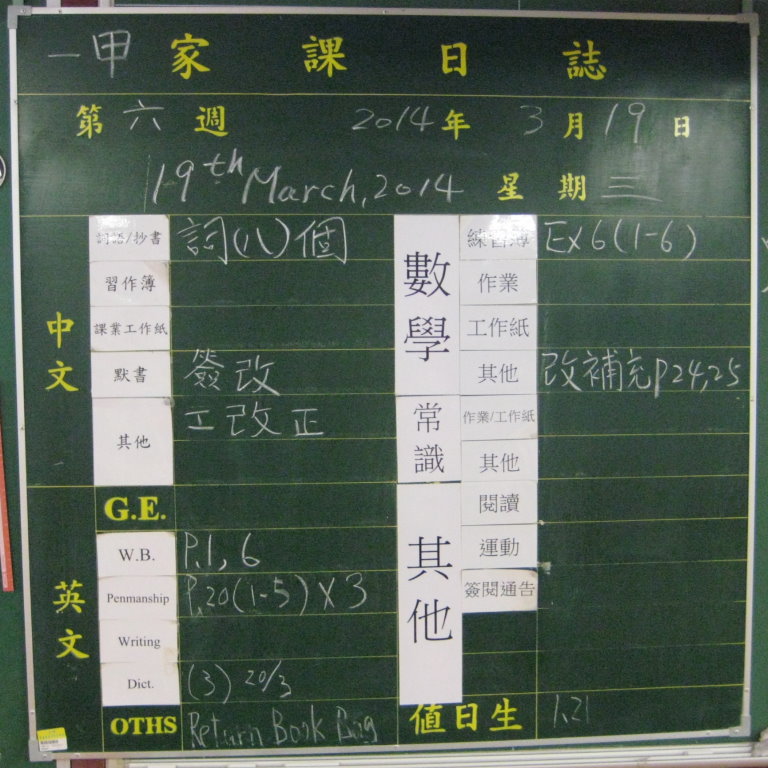 一甲 家課日誌
第六週 2014年3月19日
19th March, 2014 星期三
中文
詞語/抄書 詞(八)個
習作簿
課業工作紙
默書 簽改
其他 工改正
英文
G.E.
W.B. P.1, 6
Penmanship P.20(1-5)×3
Writing
Dict. (3) 20/3
OTHS Return Book Bag
數學
練習簿 Ex6(1-6)
作業
工作紙
其他 改補充p24,25
常識
作業/工作紙
其他
其他
閱讀
運動
簽閱通告
值日生 1,21